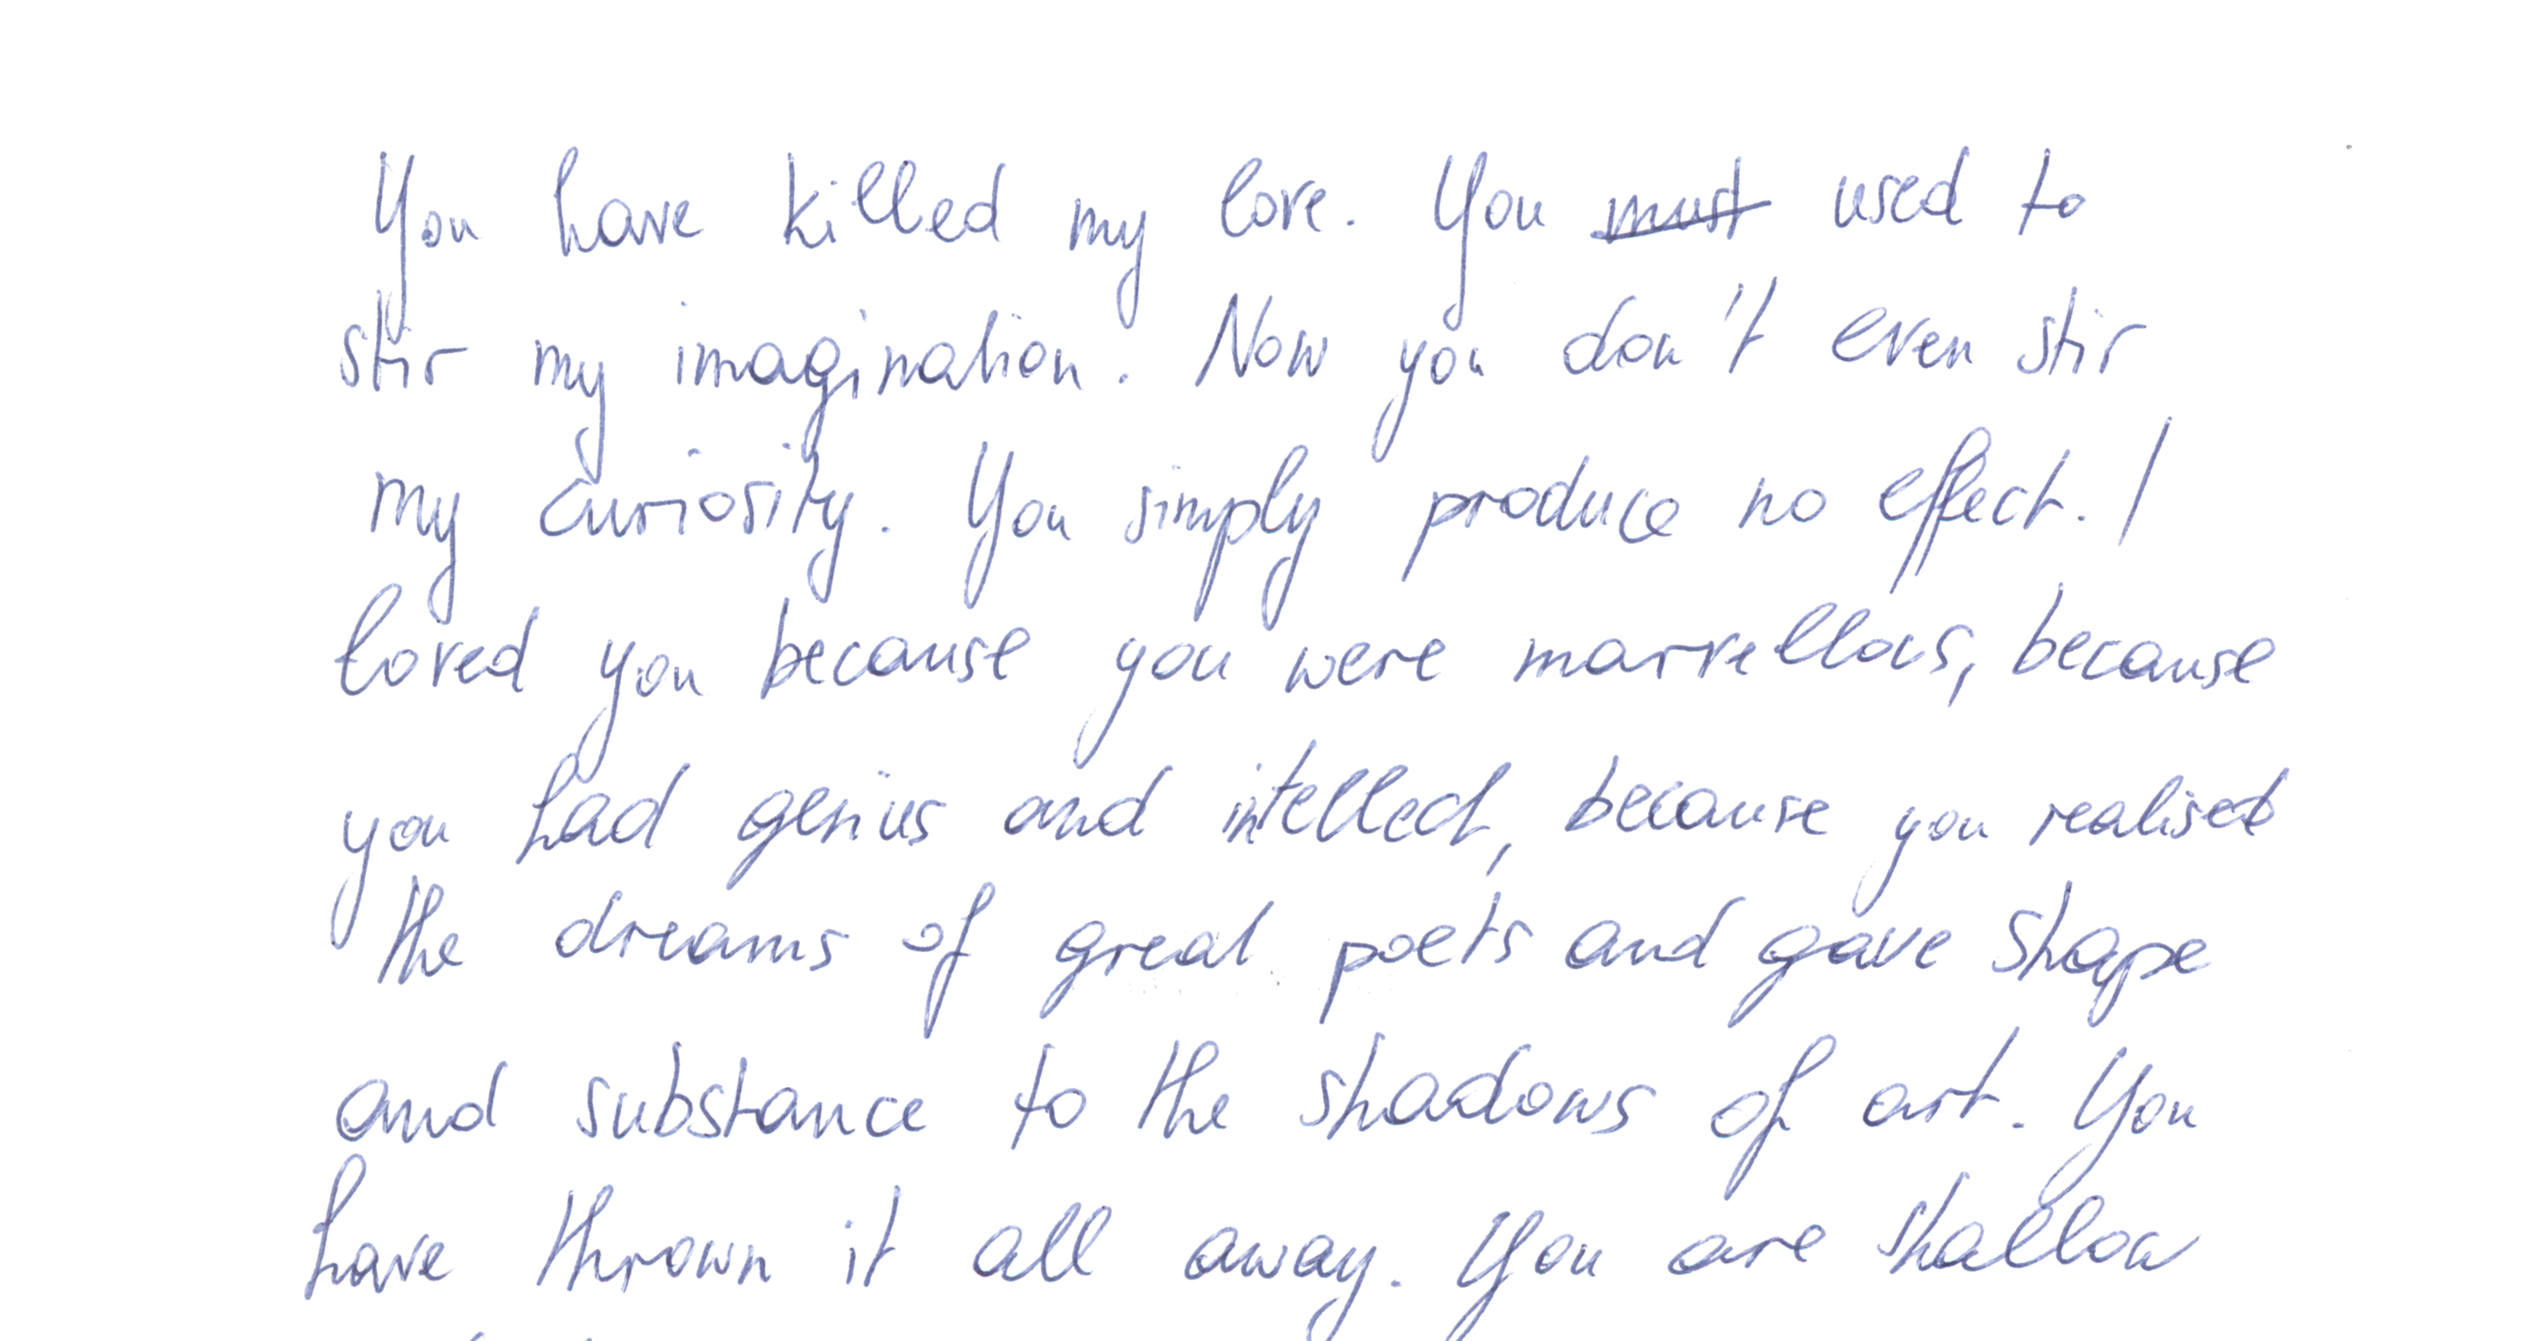 You have killed my love. You must used to
stir my imagination. Now you don't even stir
my curiosity. You simply produce no effect. I
loved you because you were marvellous, because
you had genius and intellect, because you realised
the dreams of great poets and gave shape
and substance to the shadows of art. You
have thrown it all away. You are shallow